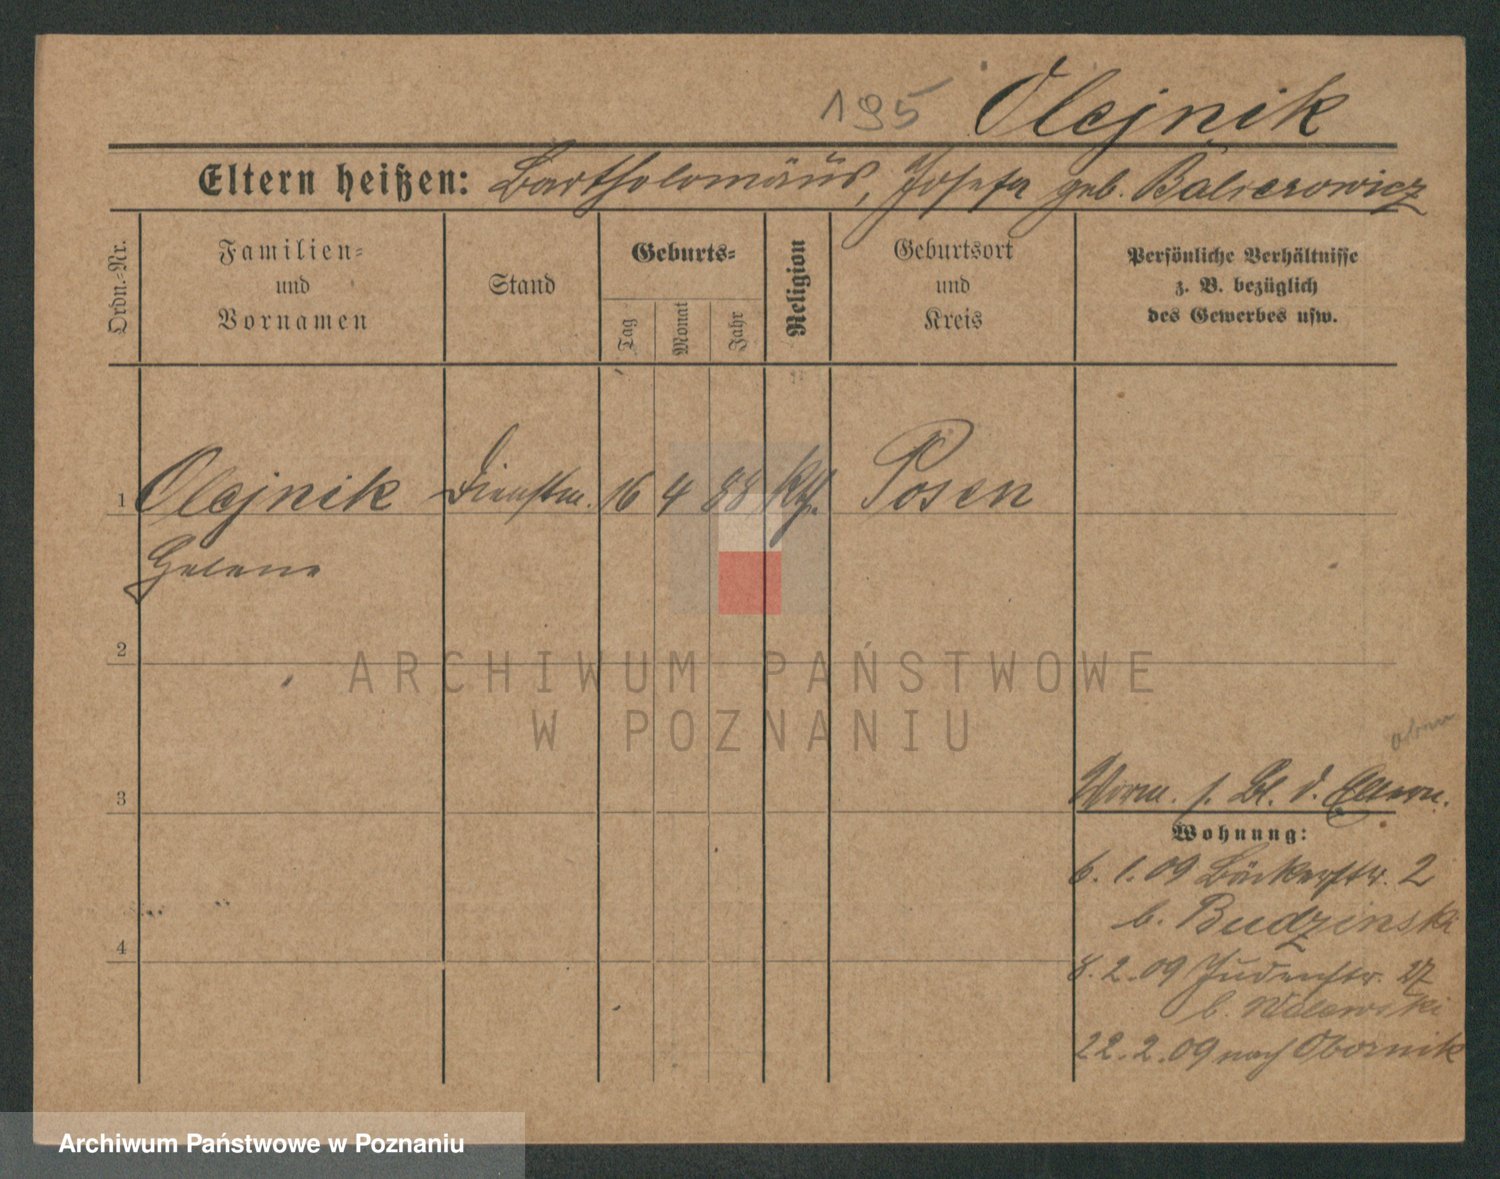 195 Olejnik
Eltern heißen: Bartholomäus, Josefa geb. Balcerowicz
Ordn.-Nr.
Familien-
und
Vornamen
Stand
Geburts-
Tag
Monat
Jahr
Religion
Geburtsort
und
Kreis
Persönliche Verhältnisse
z. B. bezüglich
des Gewerbes usw.
1 Olejnik Dienstm. 16 4 88 kth. Posen
Helene
2
ARCHIWUM PAŃSTWOWE
W POZNANIU
3
Vorm. s. Bl. d. Eltern.
Wohnung:
6. 1. 09 Bäckerstr. 2
b. Budzinski
4
8. 2. 09 Judenstr. 27
b. Walewski
22. 2. 09 nach Obornik
Archiwum Państwowe w Poznaniu